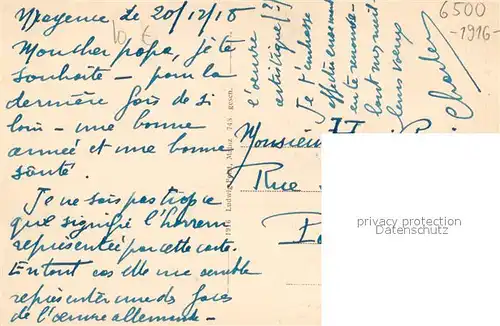 Mayence le 20/12/18
10 €
Mon cher papa, je te
souhaite – pour la
dernière fois de si
loin – une bonne
année et une bonne
santé.
Je ne sais pas trop ce
que signifie l'horreur
représentée par cette carte.
En tout cas elle me semble
représenter une des faces
de l'œuvre allemande –
l'œuvre
artistique (!)
Je t'embrasse
effectueusement
en te renouve-
lant mes meil-
leurs vœux
6500
-1916-
Monsieur
Rue
1916 Ludwig Mainz 745 gesch.
privacy protection
Datenschutz